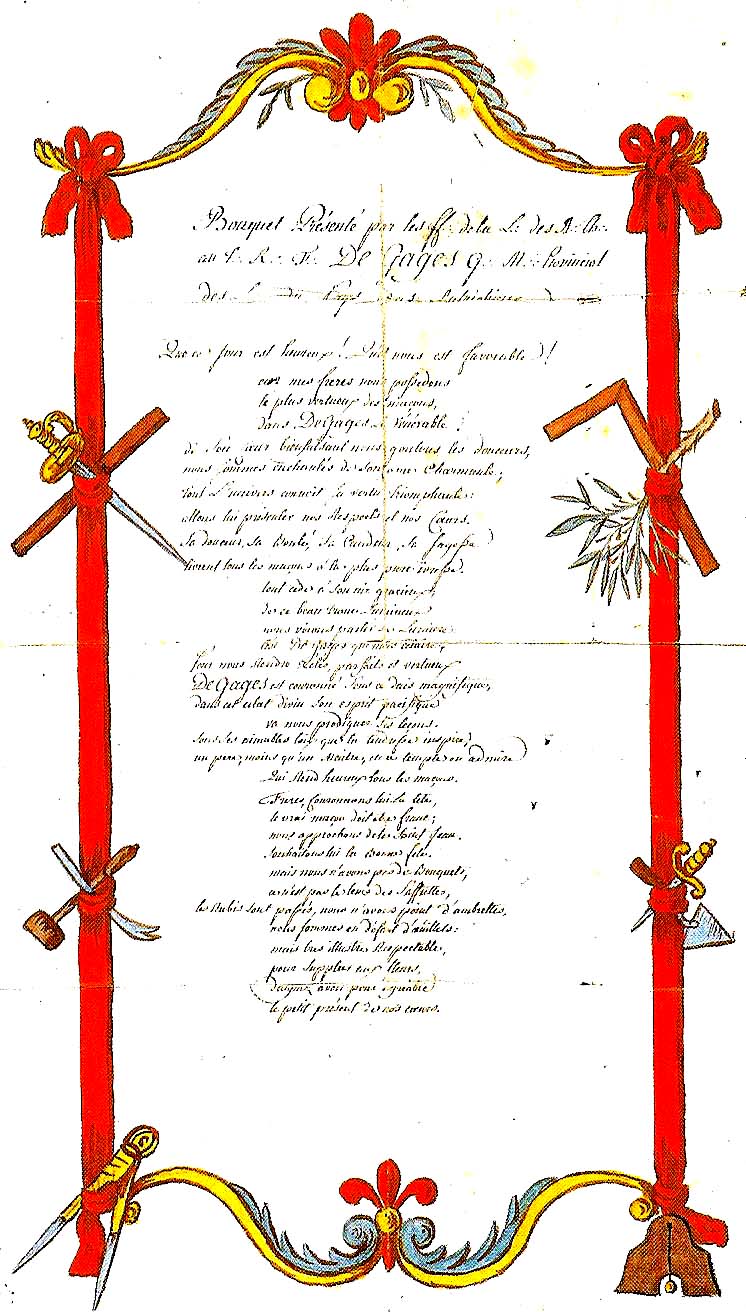 Bouquet Présenté par les ff. de la L. des
au T. R. F. De Gages G. M. Provincial
des L. du Pays bas Autrichiens
Que ce jour est heureux ! qu'il nous est favorable !
car mes freres nous possedons
le plus vertueux des maçons,
dans DeGages Vénérable ;
de son cœur bienfaisant nous goutons les douceurs,
nous sommes enchantés de son ame charmante ;
tout l'univers connoit sa vertu triomphante :
allons lui presenter nos Respects et nos Cœurs.
Sa douceur, sa Bonté, sa Candeur, sa sagesse
livrent tous les maçons à la plus pure ivresse
tout cede à son air gracieux,
de ce beau trone Lumineux
nous voions partir la Lumiere
c'est De Gages qui nous éclaire,
pour nous Rendre zelés, parfaits et vertueux
DeGages est couronné sous ce dais magnifique,
dans cet eclat divin son esprit pacifique
va nous prodiguer ses leçons.
sous ses aimables loix que la tendresse inspire,
un pere, moins qu'un Maitre, en ce temple on admire
Qui Rend heureux tous les maçons.
Freres, Couronnons lui la tête,
le vrai maçon doit etre franc ;
nous approchons de la Saint Jean.
souhaitons lui la Bonne fete.
mais nous n'avons pas de Bouquet,
ce n'est pas le tems des
les Rubis sont passés, nous n'avons point d'ambrettes,
nous sommes en défaut d'œuillets :
mais tres illustre Respectable,
pour suppléer aux fleurs,
daignez avoir pour agréable
le petit présent de nos cœurs.